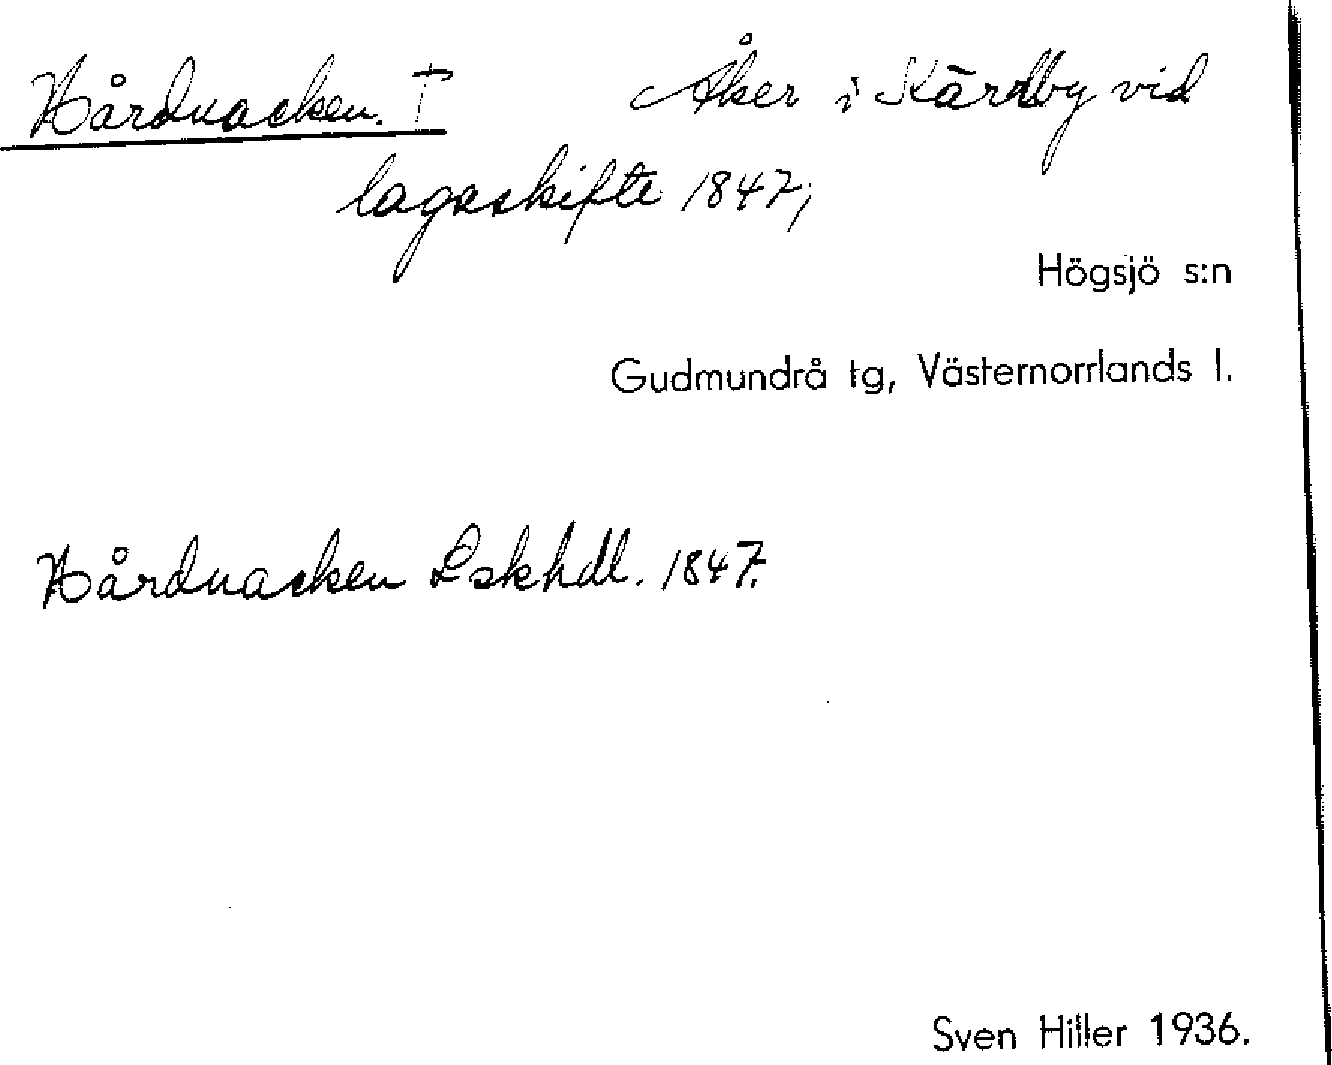 Hårdnacken. † Åker i Kärrby vid
lagaskifte 1847;
Högsjö s:n
Gudmundrå tg, Västernorrlands l.
Hårdnacken Lskhdl. 1847.
Sven Hiller 1936.